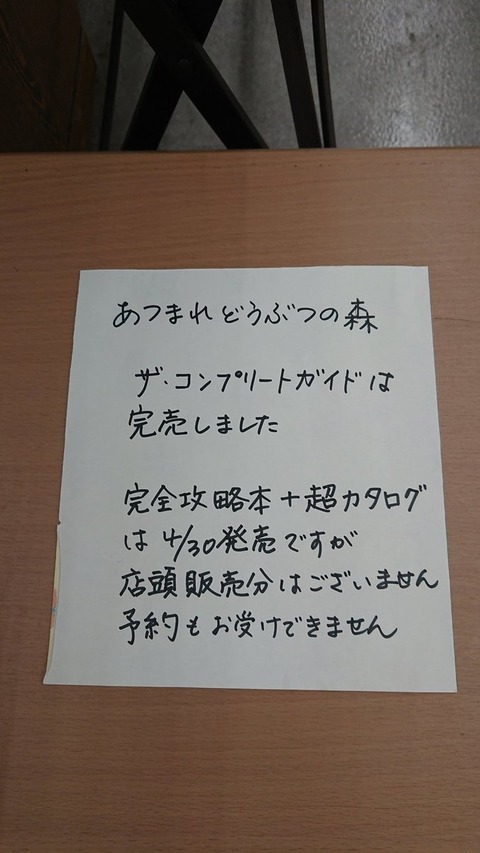 あつまれどうぶつの森
ザ・コンプリートガイドは
完売しました
完全攻略本+超カタログ
は4/30発売ですが
店頭販売分はございません
予約もお受けできません